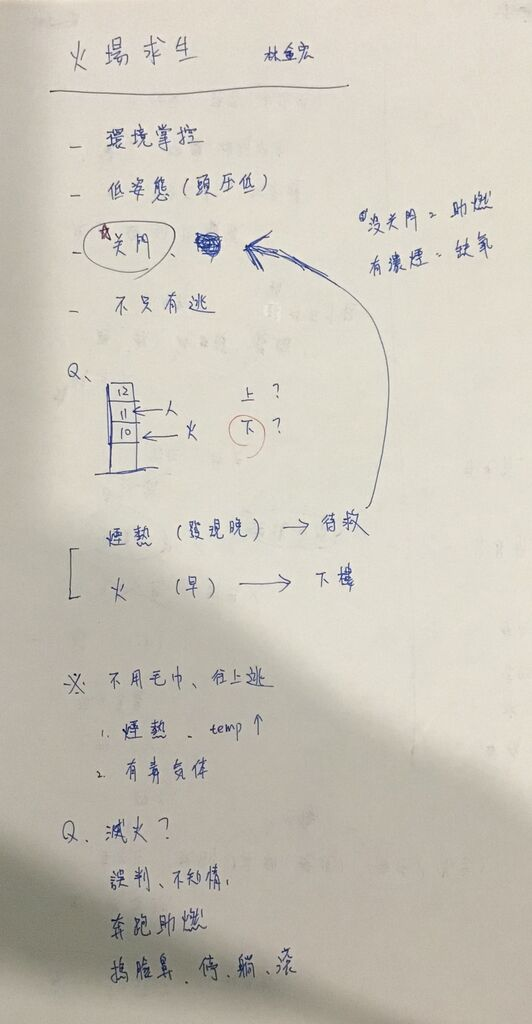 火場求生 林金宏
- 環境掌控
- 低姿態(頭压低)
- 关門、
- 不只有逃
没关門=助燃
有濃煙=缺氧
Q、
12
11 ← 人
10 ← 火
上?
下?
煙熱 (發現晚) → 待救
火 (早) → 下樓
※ 不用毛巾、往上逃
1. 煙熱、temp↑
2. 有毒气体
Q、滅火?
誤判、不知情、
奔跑助燃
摀臉鼻、停、躺、滾